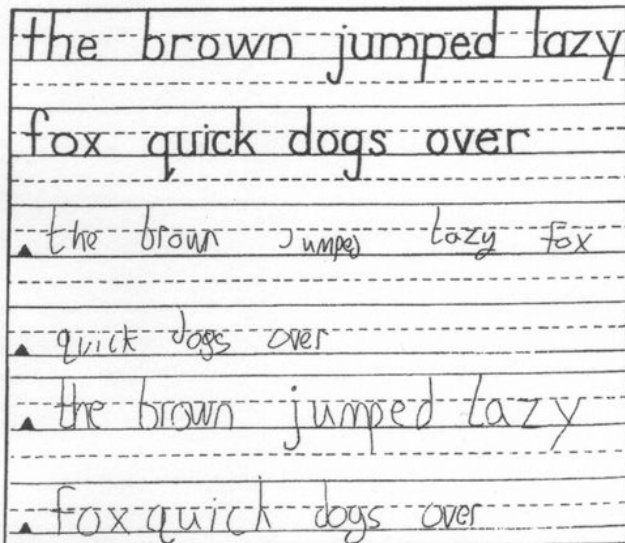 the brown jumped lazy
fox quick dogs over
the brown jumped lazy fox
quick dogs over
the brown jumped lazy
fox quick dogs over